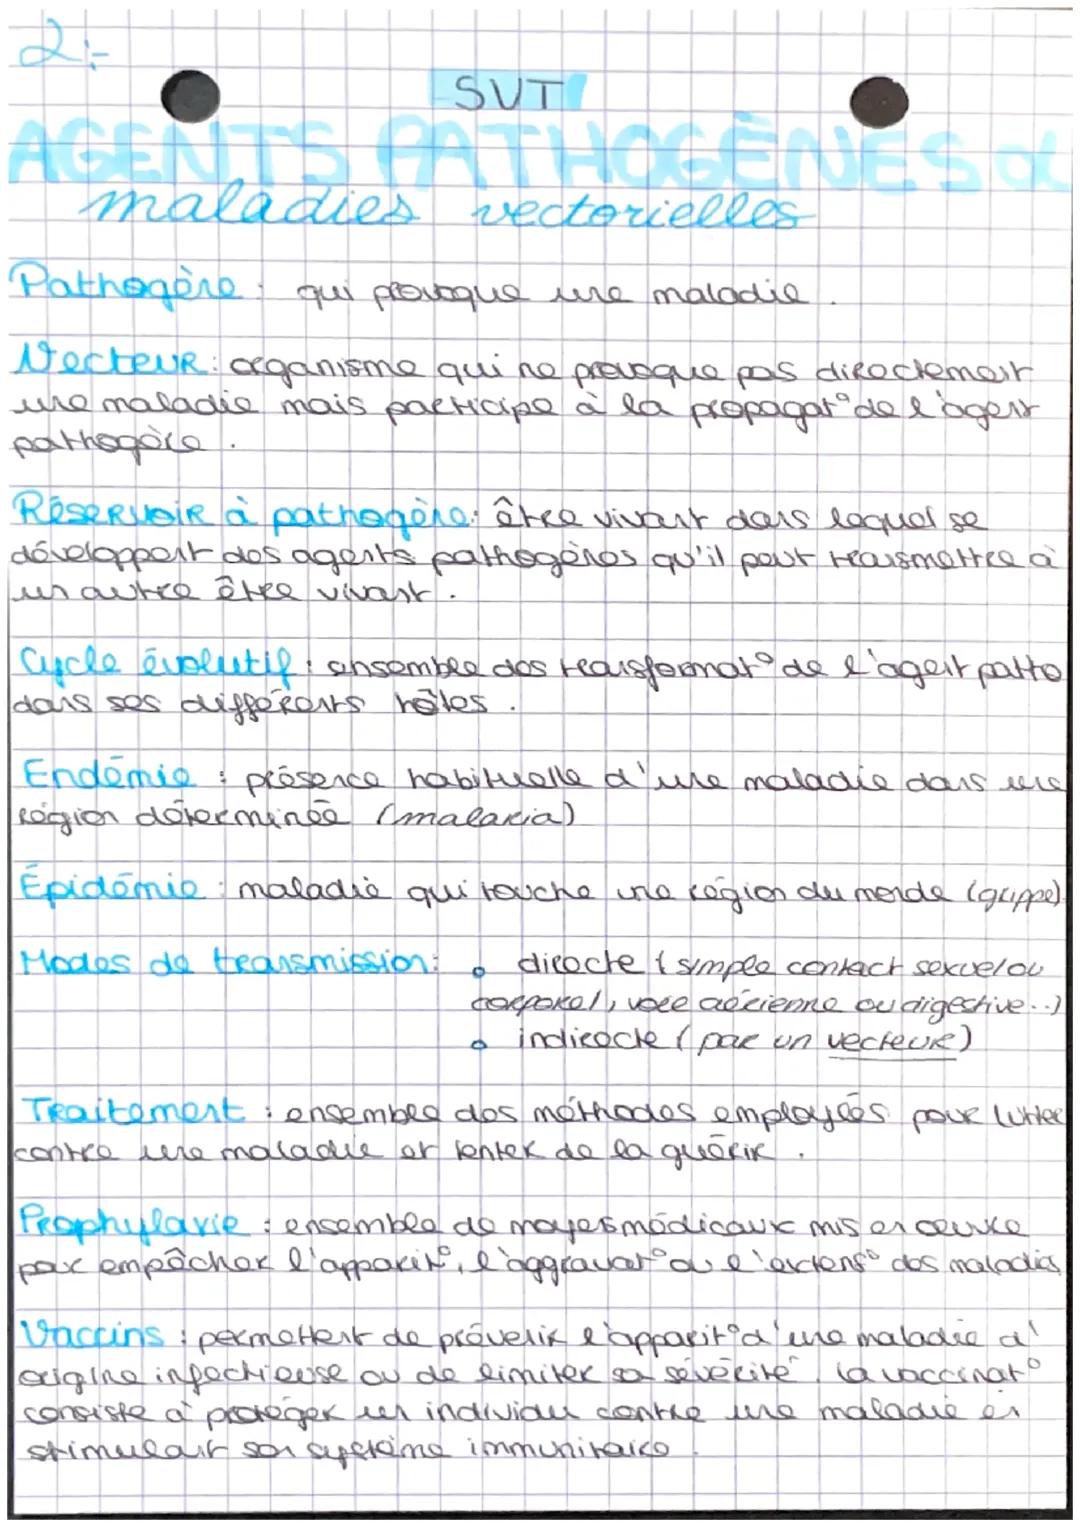 2:-
SVT
AGENTS PATHOGÈNES &
maladies vectorielles
Pathogène : qui provoque une maladie.
Vecteur : organisme qui ne provoque pas directement
une maladie mais participe à la propagat° de l'agent
pathogène.
Réservoir à pathogène : être vivant dans lequel se
développent des agents pathogènes qu'il peut transmettre à
un autre être vivant.
Cycle évolutif : ensemble des transformat° de l'agent patho
dans ses différents hôtes.
Endémie : présence habituelle d'une maladie dans une
région déterminée (malaria)
Épidémie : maladie qui touche une région du monde (grippe)
Modes de transmission : • directe (simple contact sexuel ou
corporel, voie aérienne ou digestive...)
• indirecte (par un vecteur)
Traitement : ensemble des méthodes employées pour lutter
contre une maladie et tenter de la guérir.
Prophylaxie : ensemble de moyens médicaux mis en œuvre
par empêcher l'apparit°, l'aggravat° ou l'extens° des maladies
Vaccins : permettent de prévenir l'apparit° d'une maladie d'
origine infectieuse ou de limiter sa sévérité. La vaccinat°
consiste à protéger un individu contre une maladie en
stimulant son système immunitaire.